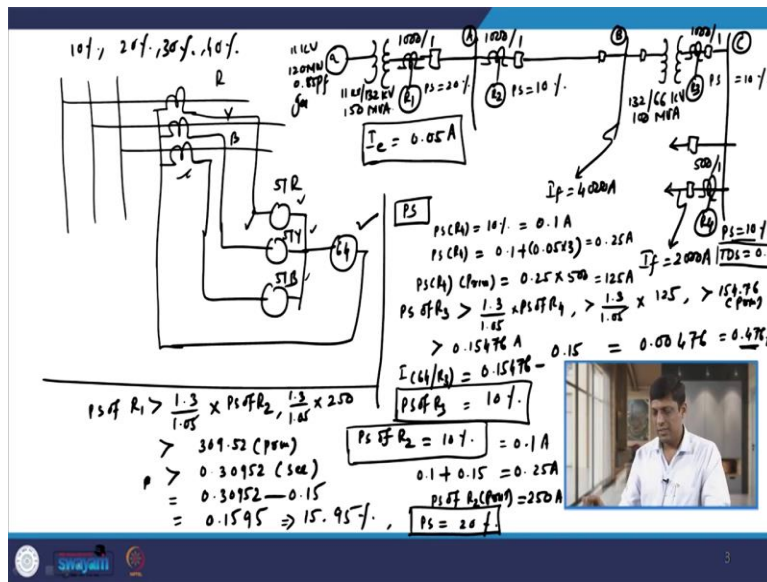 10%, 20%, 30%, 40%.
R
Y
B
51R
51Y
51B
64
11KV
120MW
0.85pf
G
11KV/132KV
150MVA
1000/1
R1
PS=20%
A
1000/1
R2
PS=10%
B
132/66KV
100MVA
1000/1
R3
PS=10%
C
Ie = 0.05A
If=4000A
500/1
R4
PS=10%
TDS=0.
If=2000A
PS
PS(R4) = 10% = 0.1A
PS(R4) = 0.1+(0.05x3)=0.25A
PS(R4)(Prim) = 0.25 x 500 =125A
PS of R3 > 1.3/1.05 x PS of R4, > 1.3/1.05 x 125, > 154.76 (Prim)
> 0.15476 A
I(64/R3) = 0.15476 - 0.15 = 0.00476 = 0.476
PS of R3 = 10%.
PS of R2 = 10%. = 0.1A
0.1+0.15 = 0.25A
PS of R2 (Prim) = 250A
PS of R1 > 1.3/1.05 x PS of R2, 1.3/1.05 x 250
> 309.52 (Prim)
> 0.30952 (Sec)
= 0.30952 - 0.15
= 0.1595 => 15.95%, PS = 20%.
swayam
3